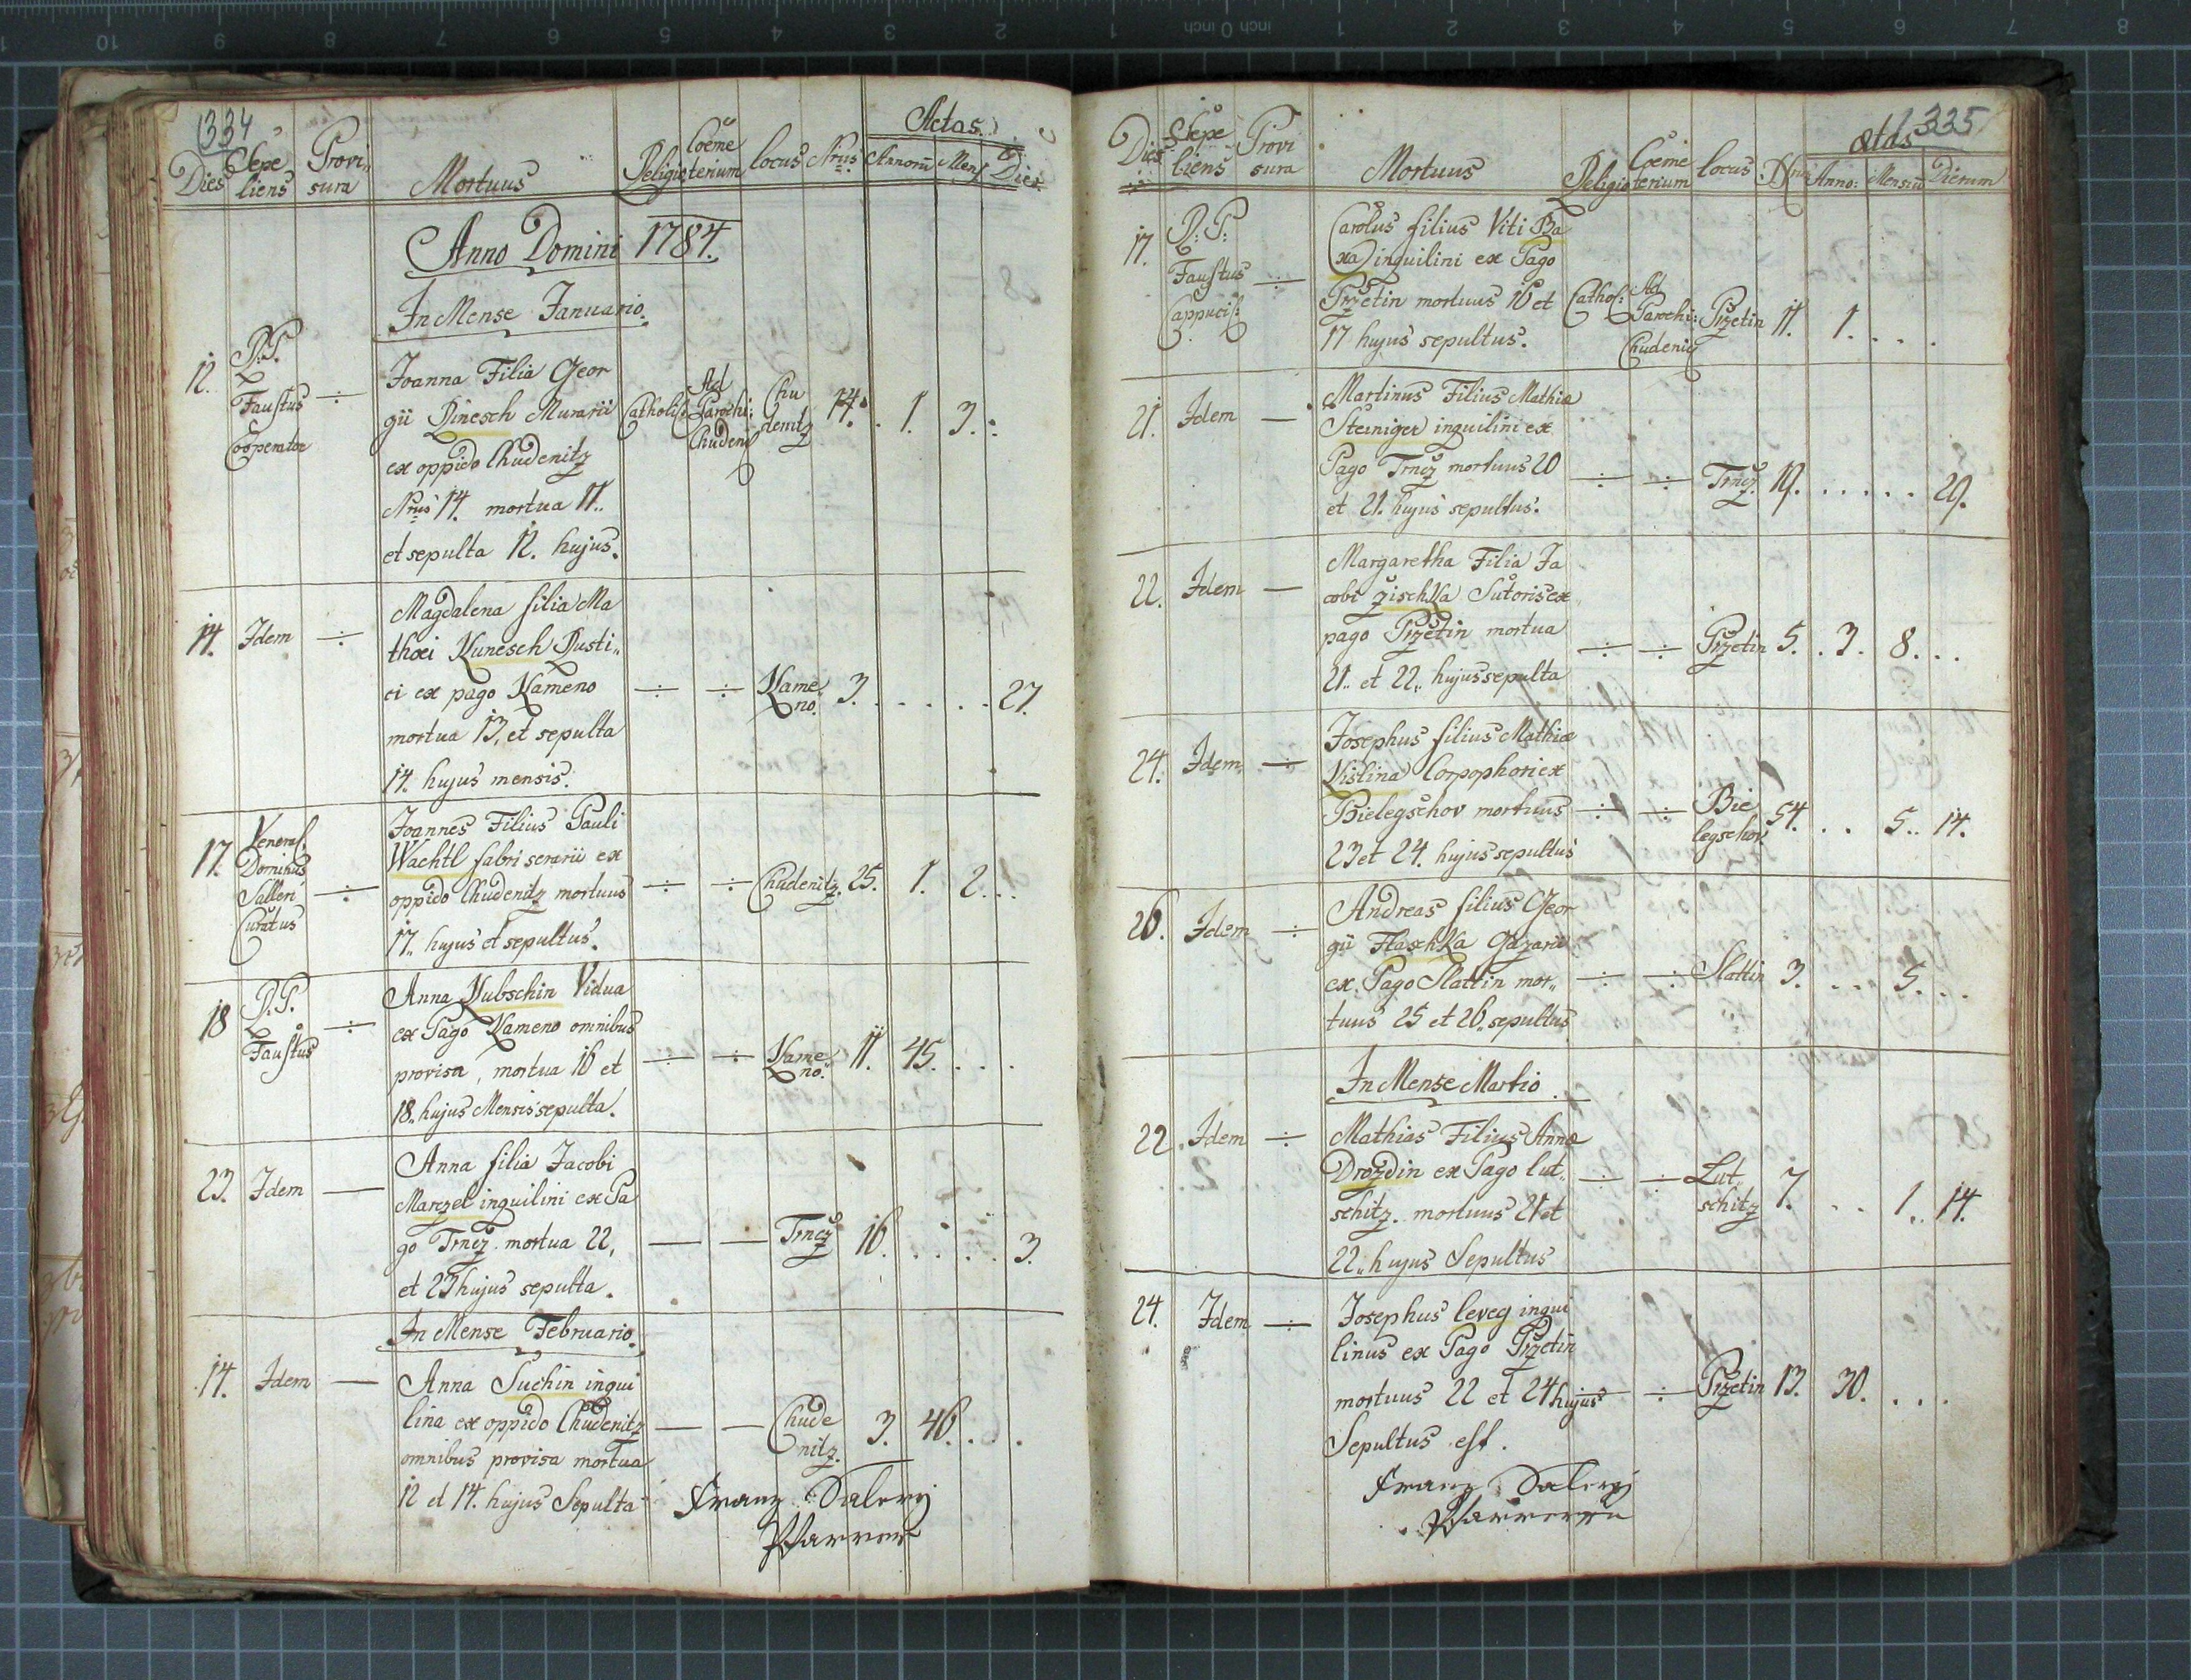 334
Dies Sepe liens Provi sura Mortuus Religio Coeme terium Locus Nrus Aetas. Annorū Mens Dies
Anno Domini 1784.
In Mense Januario.
12. P.P. Faustus Cooperator
Joanna Filia Geor
gii Dinesch Murarii
ex oppido Chudenitz
Nrus 14. mortua 11..
et sepulta 12. hujus.
Catholi: Ad Parochi: Chuden Chu denitz 14. 1. 3.
14. Idem
Magdalena filia Ma
thaei Kunesch Rusti,,
ci ex pago Kameno
mortua 13, et sepulta
14. hujus mensis.
Kame no. 3. 27.
17. Veneral. Dominus Salleri Curatus
Joannes Filius Pauli
Wachtl fabri serarii ex
oppido Chudenitz mortuus
17.. hujus et sepultus.
Chudenitz. 25. 1. 2.
18 P.P. Faustus
Anna Kubschin Vidua
ex Pago Kameno omnibus
provisa, mortua 16 et
18.. hujus Mensis sepulta.
Kame no. 11. 45.
23. Idem
Anna filia Jacobi
Marczel inquilini ex Pa
go Trncz mortua 22,
et 23 hujus sepulta.
Trncz 16. 3.
In Mense Februario.
14. Idem
Anna Suchin inqui
lina ex oppido Chudenitz
omnibus provisa mortua
12 et 14. hujus Sepulta
Chude nitz. 3. 46.
Franz Salery
Pfarrer
335
Dies Sepe liens Provi sura Mortuus Religio Coeme terium Locus Nrus aetas Anno: Mensiū Dierum
17. P.P. Faustus Cappuci:
Carolus filius Viti Ba
xa inquilini ex Pago
Przetin mortuus 16 et
17 hujus sepultus.
Cathol: Ad Parochi: Chudeni Przetin 11. 1.
21. Idem
Martinus Filius Mathiae
Steiniger inquilini ex
Pago Trncz mortuus 20
et 21. hujus sepultus.
Trncz. 19. 29.
22. Idem
Margaretha Filia Ja
cobi Zischka Sutoris ex
pago Przetin mortua
21.. et 22.. hujus sepulta
Przetin 5. 3. 8.
24. Idem
Josephus filius Mathiae
Kislina Corpophori ex
Bielegschov mortuus
23 et 24. hujus sepultus
Bie legschov. 54. 5.. 14.
26. Idem
Andreas filius Geor
gii Flaschka Gazarii
ex Pago Slattin mor,,
tuus 25 et 26.. sepultus
Slattin 3. 5.
In Mense Martio
22 Idem
Mathias Filius Annae
Drozdin ex Pago Lut,,
schitz. mortuus 21 et
22.. hujus Sepultus
Lut,, schitz 7. 1.. 14.
24. Idem
Josephus leveg inqui
linus ex Pago Przetin
mortuus 22 et 24 hujus
Sepultus est.
Przetin 13. 30.
Franz Salery